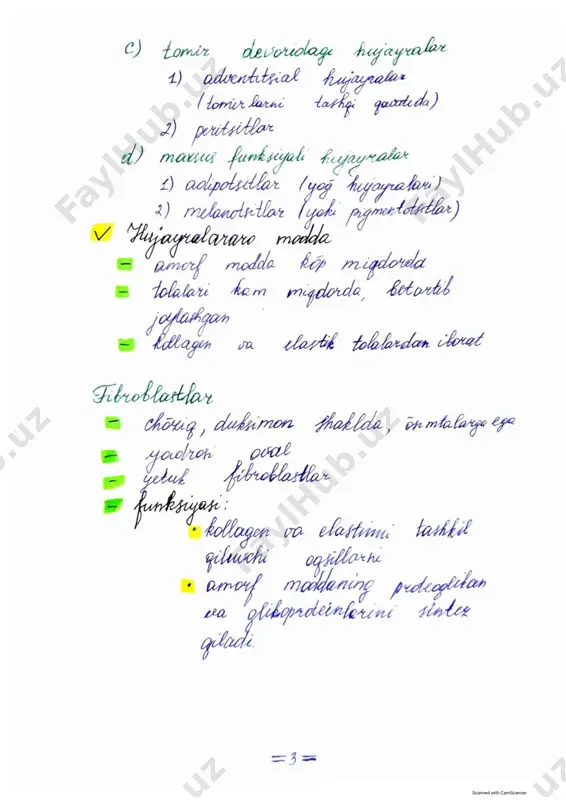 c) tomir devoridagi hujayralar
1) adventitsial hujayralar
(tomirlarni tashqi qavatida)
2) peritsitlar
d) maxsus funksiyali hujayralar
1) adipotsitlar (yog hujayralari)
2) melanotsitlar (yoki pigmentotsitlar)
✓ Hujayralararo modda
- amorf modda kóp miqdorda
- tolalari kam miqdorda, betartib
joylashgan
- kollagen va elastik tolalardan iborat
Fibroblastlar
- chóziq, duksimon shaklda, ósimtalarga ega
- yadrosi oval
- yetuk fibroblastlar
- funksiyasi:
• kollagen va elastinni tashkil
qiluvchi oqsillarni
• amorf moddaning proteoglikan
va glikoproteinlarini sintez
qiladi.
= 3 =
Scanned with CamScanner
FaylHub.uz
FaylHub.uz
FaylHub.uz
FaylHub.uz